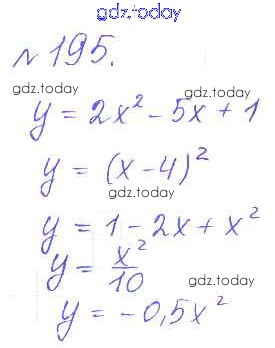 gdz.today
№195.
gdz.today gdz.today
y = 2x² - 5x + 1
gdz.today
y = (x - 4)²
gdz.today
y = 1 - 2x + x²
y = x²/10
gdz.today
y = -0,5x²